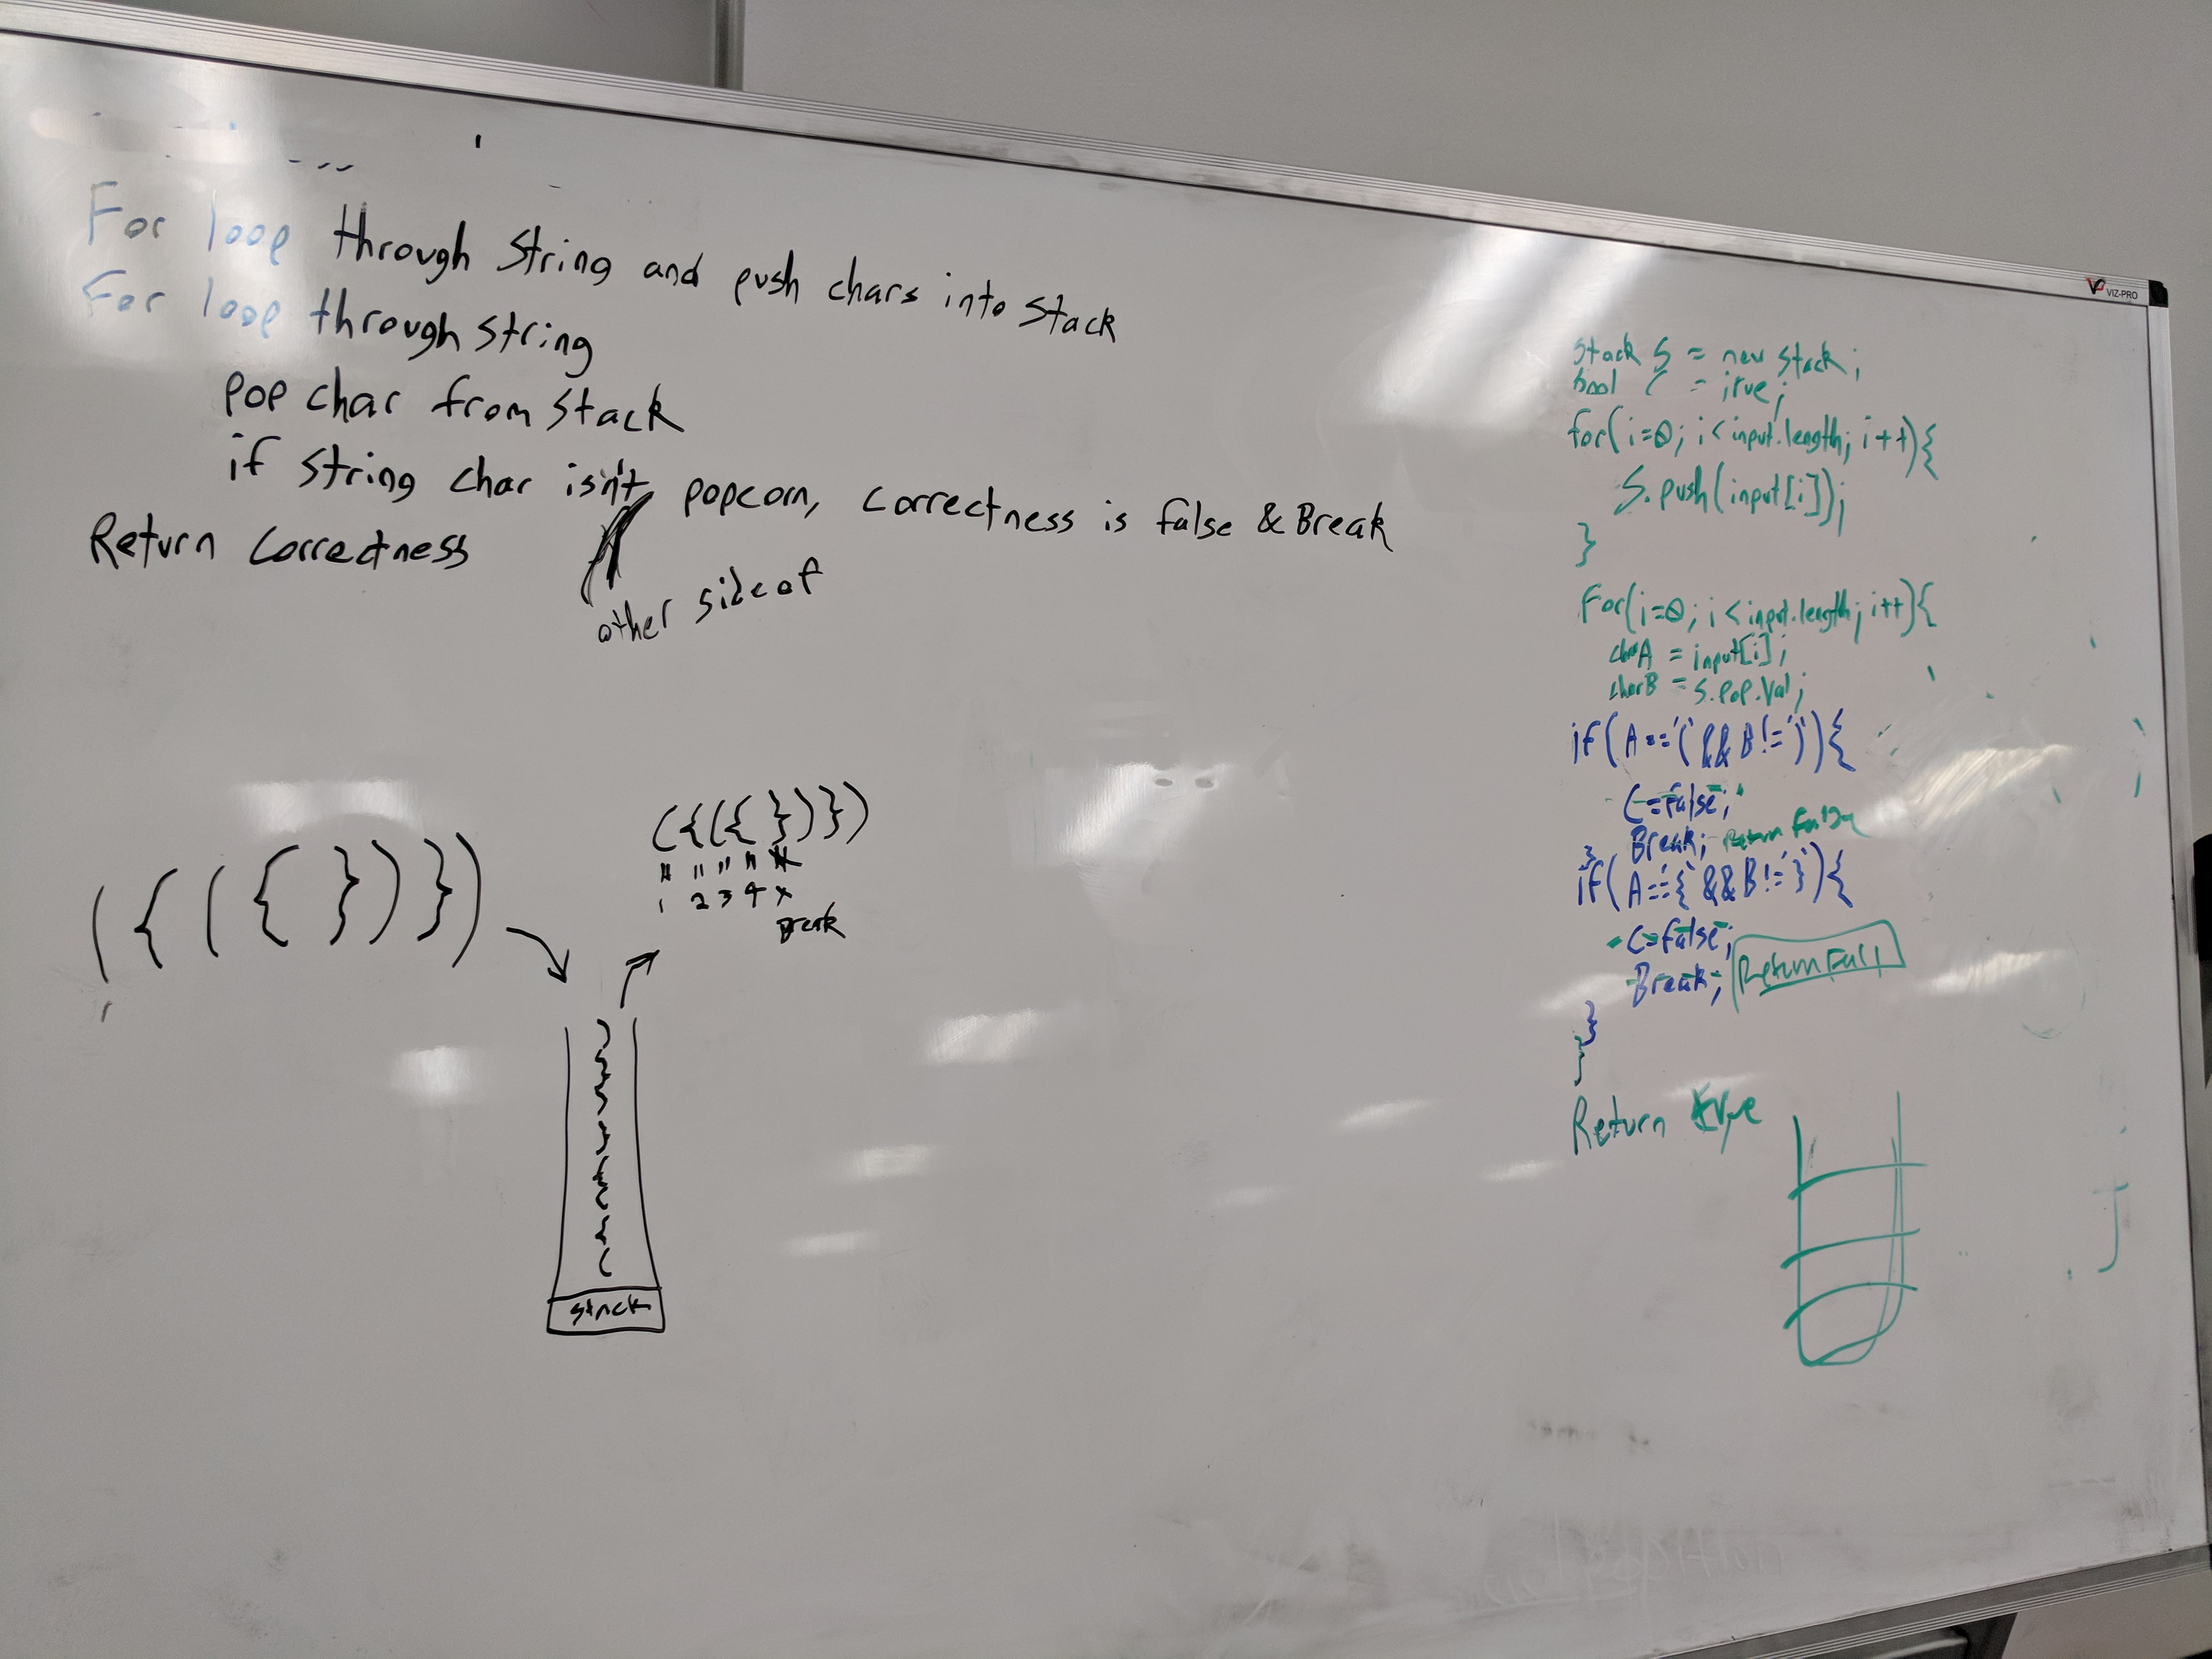 For loop through String and push chars into Stack
For loop through string
pop char from stack
if string char isn't popcorn, correctness is false & Break
other side of
Return Correctness
({({})})
({({})})
" " " " "
1 2 3 4 x
Break
stack
VIZ-PRO
Stack S = new Stack;
bool C = true;
for(i=0; i<input.length; i++){
S.push(input[i]);
}
For(i=0; i<input.length; i++){
charA = input[i];
charB = S.pop.Val;
if(A=='(' && B!=')'){
C=false;
Break; Return False
}
if(A=='{' && B!='}'){
C=false;
Break; Return Fall
}
}
Return true